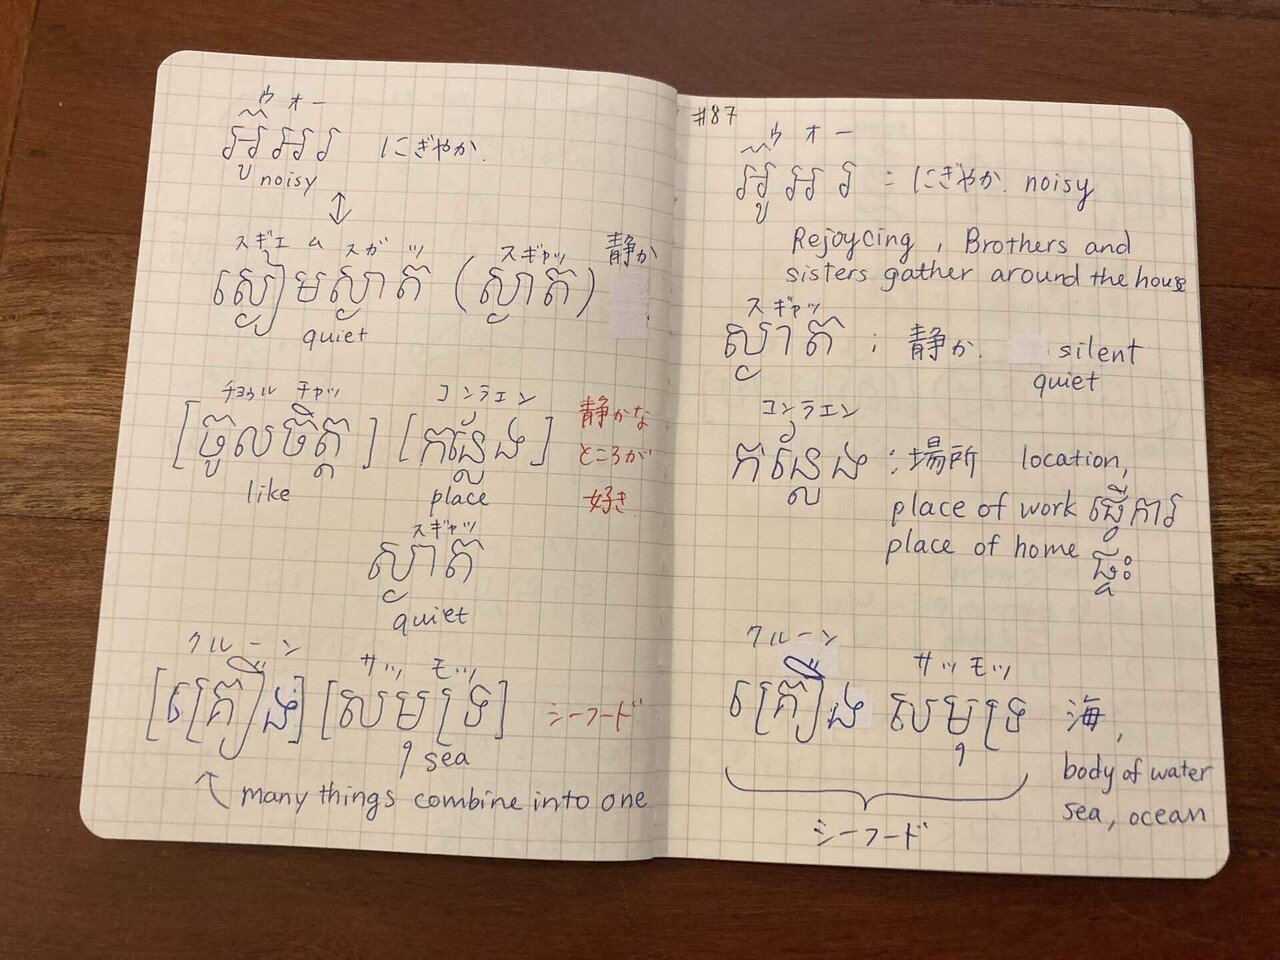 ウオー
អ៊ូអរ にぎやか.
noisy
↕
スギエム スガッ スギャッ 静か
ស្ងៀមស្ងាត់ (ស្ងាត់)
quiet
チョウル チャッ コンラエン
[ចូលចិត្ត] [កន្លែង] 静かな
ところが
like place 好き
スギャッ
ស្ងាត់
quiet
クルーン サッ モッ
[គ្រឿង] [សមុទ្រ] シーフード
sea
many things combine into one
#87
ウオー
អ៊ូអរ : にぎやか. noisy
Rejoycing, Brothers and
sisters gather around the house
スギャッ
ស្ងាត់ : 静か. silent
quiet
コンラエン
កន្លែង : 場所 location,
place of work ធ្វើការ
place of home ផ្ទះ
クルーン サッ モッ
គ្រឿង សមុទ្រ 海,
body of water
sea, ocean
シーフード